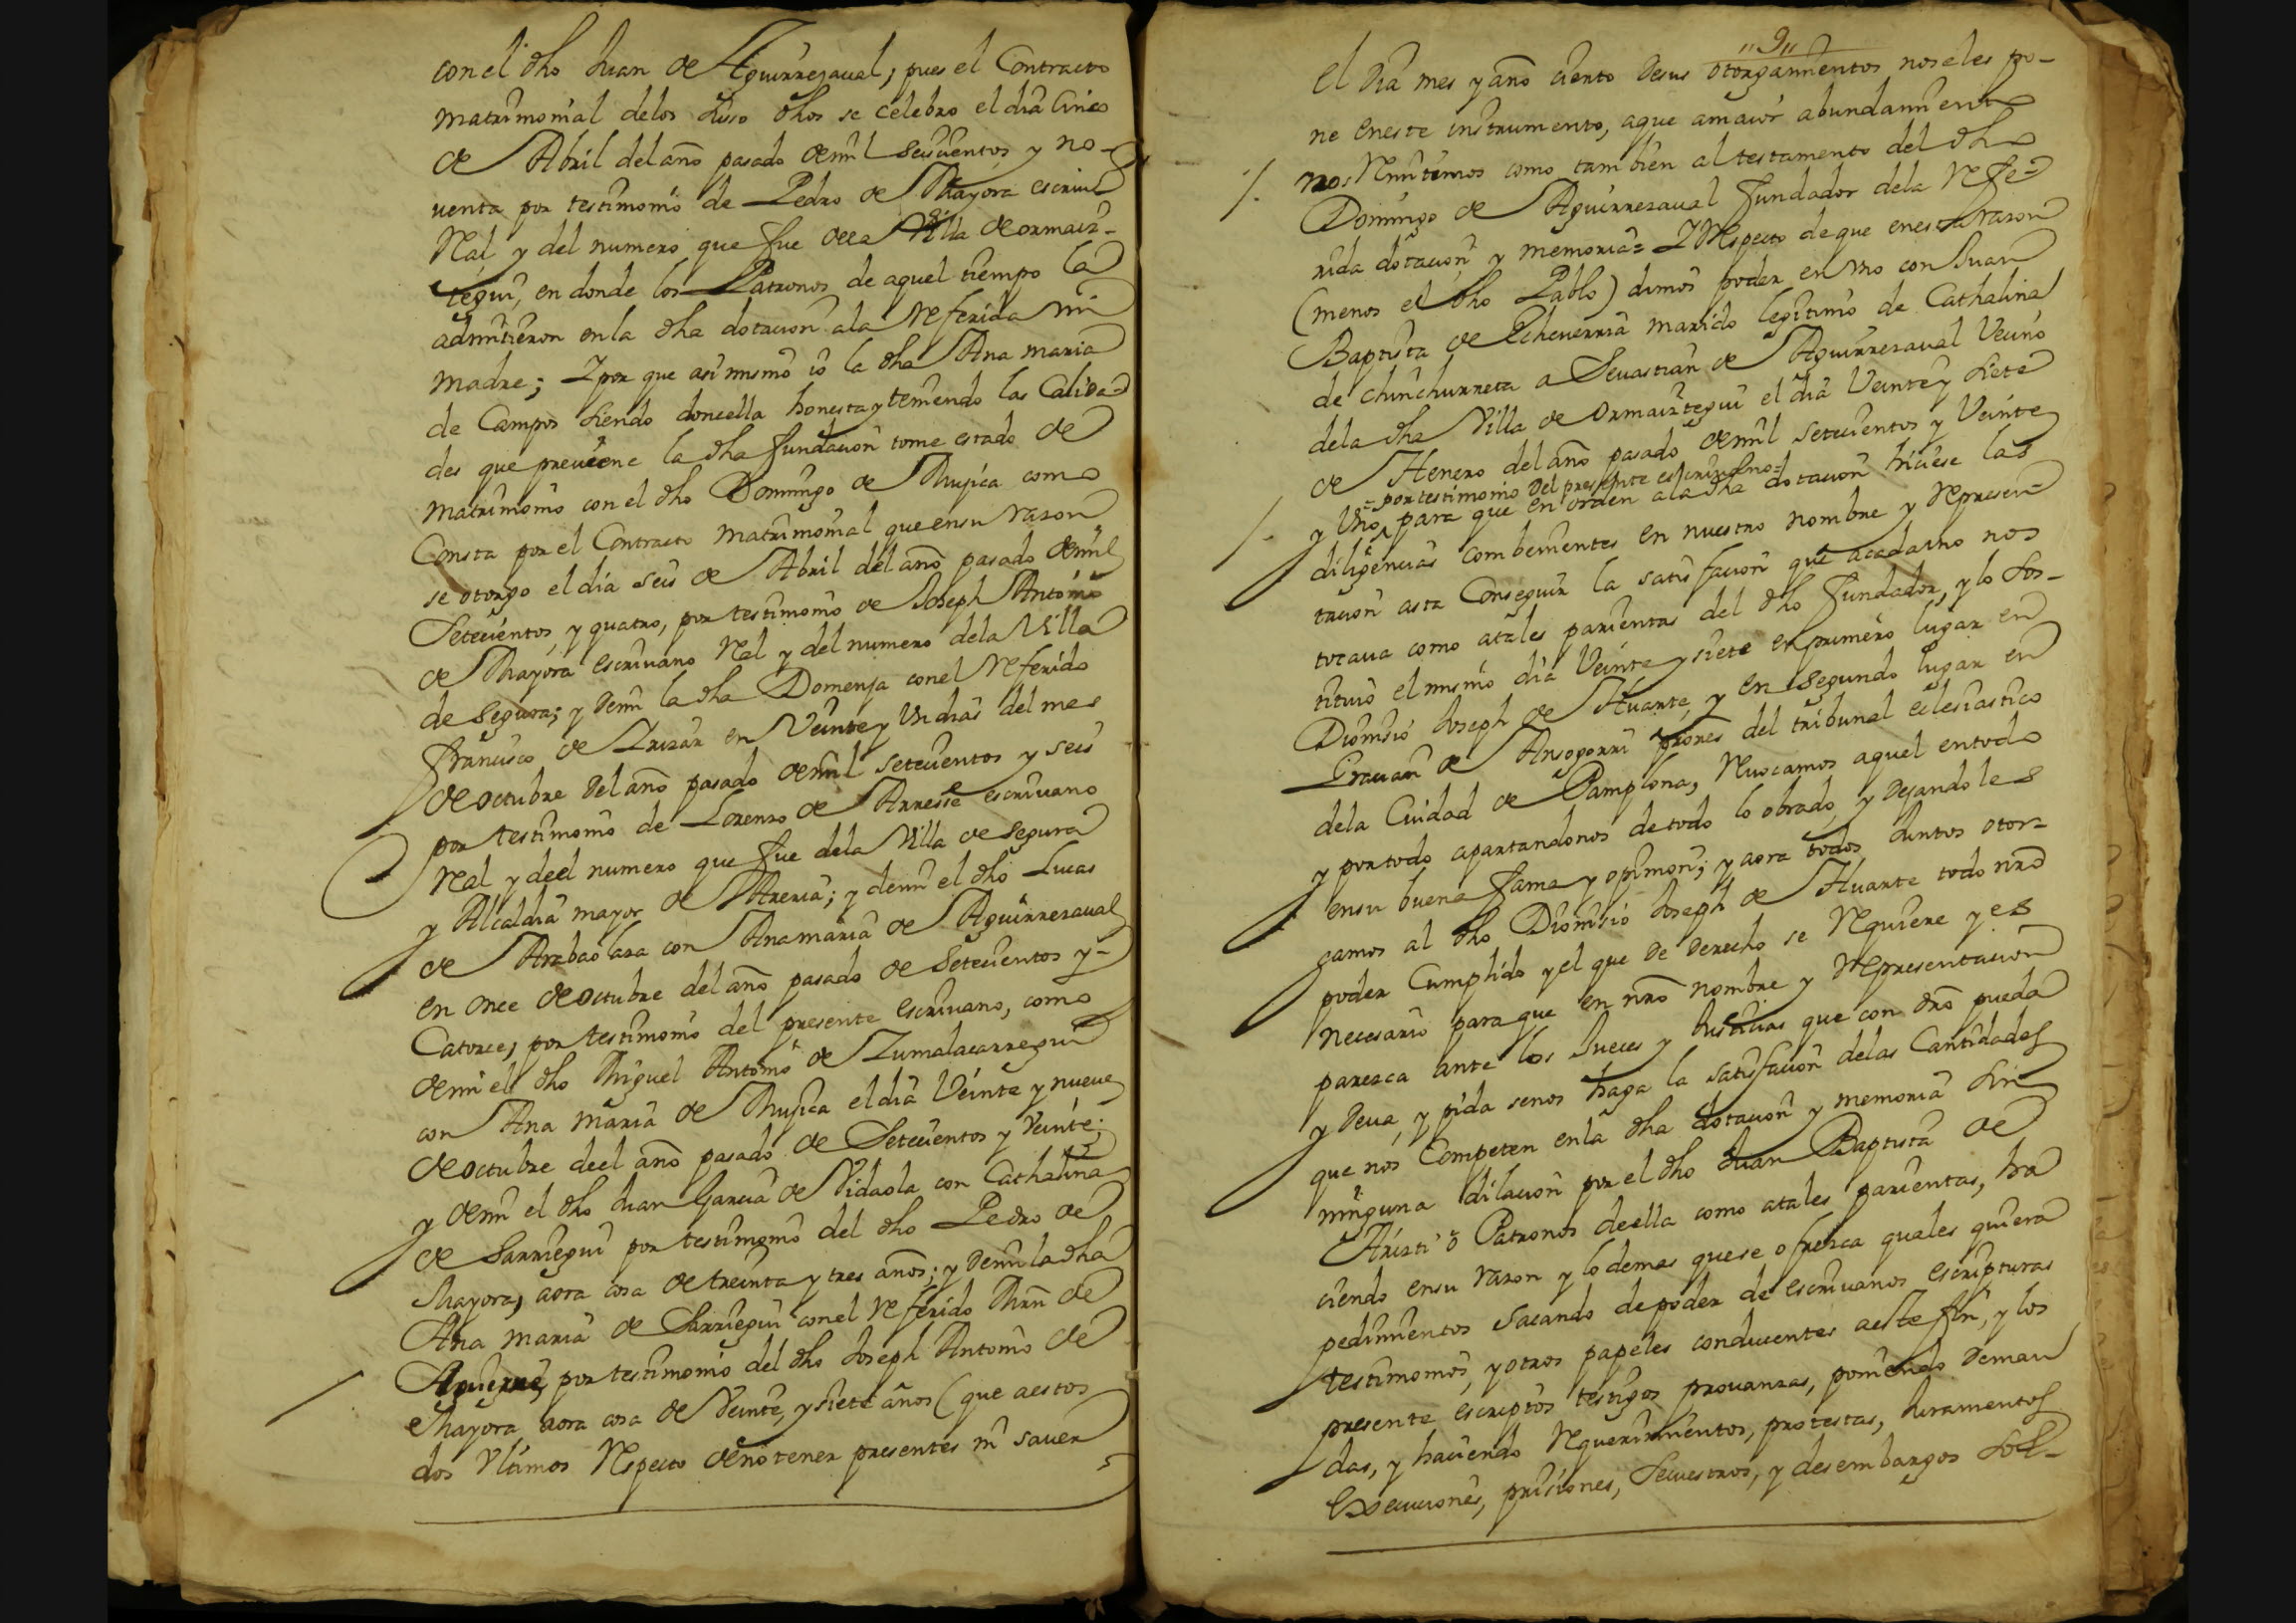 con el dho Juan de Aguirrezaual; pues el Contracto
matrimonial delos suso dhos se celebro el dia Cinco
de Abril del año pasado de mil seiscientos y no-
uenta por testimonio de Pedro de Mayora escriuº
Real y del numero que fue de la Villa de ormaiz-
tegui, en donde los Patronos de aquel tiempo la
admitieron en la dha dotacion ala Referida mi
madre; Y por que asi mismo io la dha Ana maria
de Campos siendo doncella honesta y teniendo las Calida=
des que preuiene la dha fundacion tome estado de
matrimonio con el dho Domingo de Mujica como
Consta por el Contracto matrimonial que en su razon
se otorgo el dia seis de Abril del año pasado de mil
Setecientos y quatro, por testimonio de Joseph Antonio
de Mayora escriuano Real y del numero dela Villa
de Segura; y demi la dha Domenja con el Referido
francisco de Irizar en Veinte y Un dias del mes
de octubre del año pasado de mil setecientos y seis
por testimonio de Lorenzo de Arrese escriuano
Real y deel numero que fue dela Villa de Segura
y Alcaldia mayor de Areria; y demi el dho Lucas
de Arabaolaza con Ana maria de Aguirrezaual
en once de octubre del año pasado de Setecientos y-
Catorce, por testimonio del presente escriuano, como
demi el dho Miguel Antonio de Zumalacarregui
con Ana maria de Mujica el dia Veinte y nueue
de octubre deel año pasado de Setecientos y Veinte;
y demi el dho Juan Garcia de Vidaola con Cathalina
de Sarriegui por testimonio del dho Pedro de
Mayora, aora cosa de treinta y tres años; y demi la dha
Ana maria de Sarriegui con el referido Mrn de
Aguirre, por testimonio del dho Joseph Antonio de
Mayora, aora cosa de Veinte, y siete años (que aestos
dos Vltimos Respecto de no tener presentes ni sauer
"9"
el dia mes y año cierto de sus otorgamientos no se les po-
ne en este instrumento, a que amaior abundamiento
nos Remitimos como tambien al testamento del dho
Domingo de Aguirrezaual fundador dela Refe=
rida dotacion y memoria= Y Respecto de que en esta razon
(menos el dho Pablo) dimos poder en Vno con Juan
Baptista de Echeuerria marido legitimo de Cathalina
de Chinchurreta a Seuastian de Aguirrezaual Vecino
dela dha Villa de Ormaiztegui el dia Veinte y siete
de Henero del año pasado de mil setecientos y Veinte
=por testimonio del presente escriuano=
y Vno, para que en orden ala dha dotacion hiciese las
diligencias combenientes en nuestro nombre y Represen=
tacion asta Conseguir la satisfacion que acadauno nos
tocaua como atales parientas del dho fundador, y lo sos-
tituio el mismo dia Veinte y siete en primero lugar en
Dionisio Joseph de Huarte, y en segundo lugar en
Estauan de Ansogorri prores del tribunal eclesiastico
dela Ciudad de Pamplona, Reuocamos aquel en todo
y por todo apartandonos de todo lo obrado, y dejandoles
en su buena fama y opinion; y aora todos Juntos otor=
gamos al dho Dionisio Joseph de Huarte todo nro
poder Cumplido y el que de derecho se Requiere y es
necesario para que en nro nombre y Representacion
parezca ante los Jueces y Justicias que con dro pueda
y deua, y pida se nos haga la satisfacion delas Cantidades
que nos Competen en la dha dotacion y memoria sin
ninguna dilacion por el dho Juan Baptista de
Aristi ô Patronos de ella como atales parientas, ha
ciendo en su razon y lo demas que se ofrezca quales quiera
pedimientos sacando de poder de escriuanos escripturas
testimonios, y otros papeles conducentes aeste fin, y los
presente escriptos testigos prouanzas, poniendo deman
das, y haciendo Requerimientos, protestas, Juramentos
Execuciones, prisiones, Secuestros, y desembargos sol-